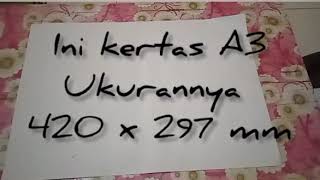 Ini kertas A3
Ukurannya
420 x 297 mm